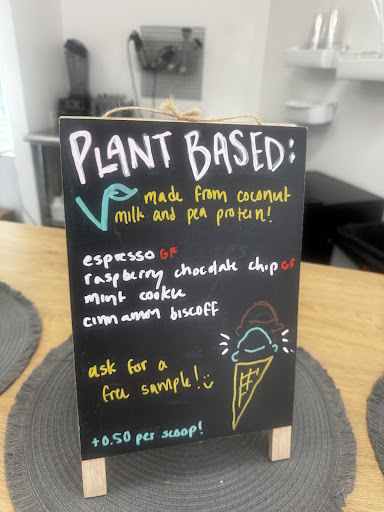 PLANT BASED:
made from coconut
milk and pea protein!
espresso GF
raspberry chocolate chip GF
mint cookie
cinnamon biscoff
ask for a
free sample!
+0.50 per scoop!